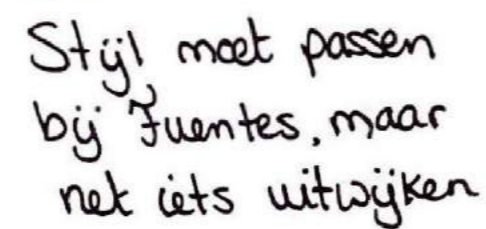 Stijl moet passen
bij Fuentes, maar
net iets uitwijken